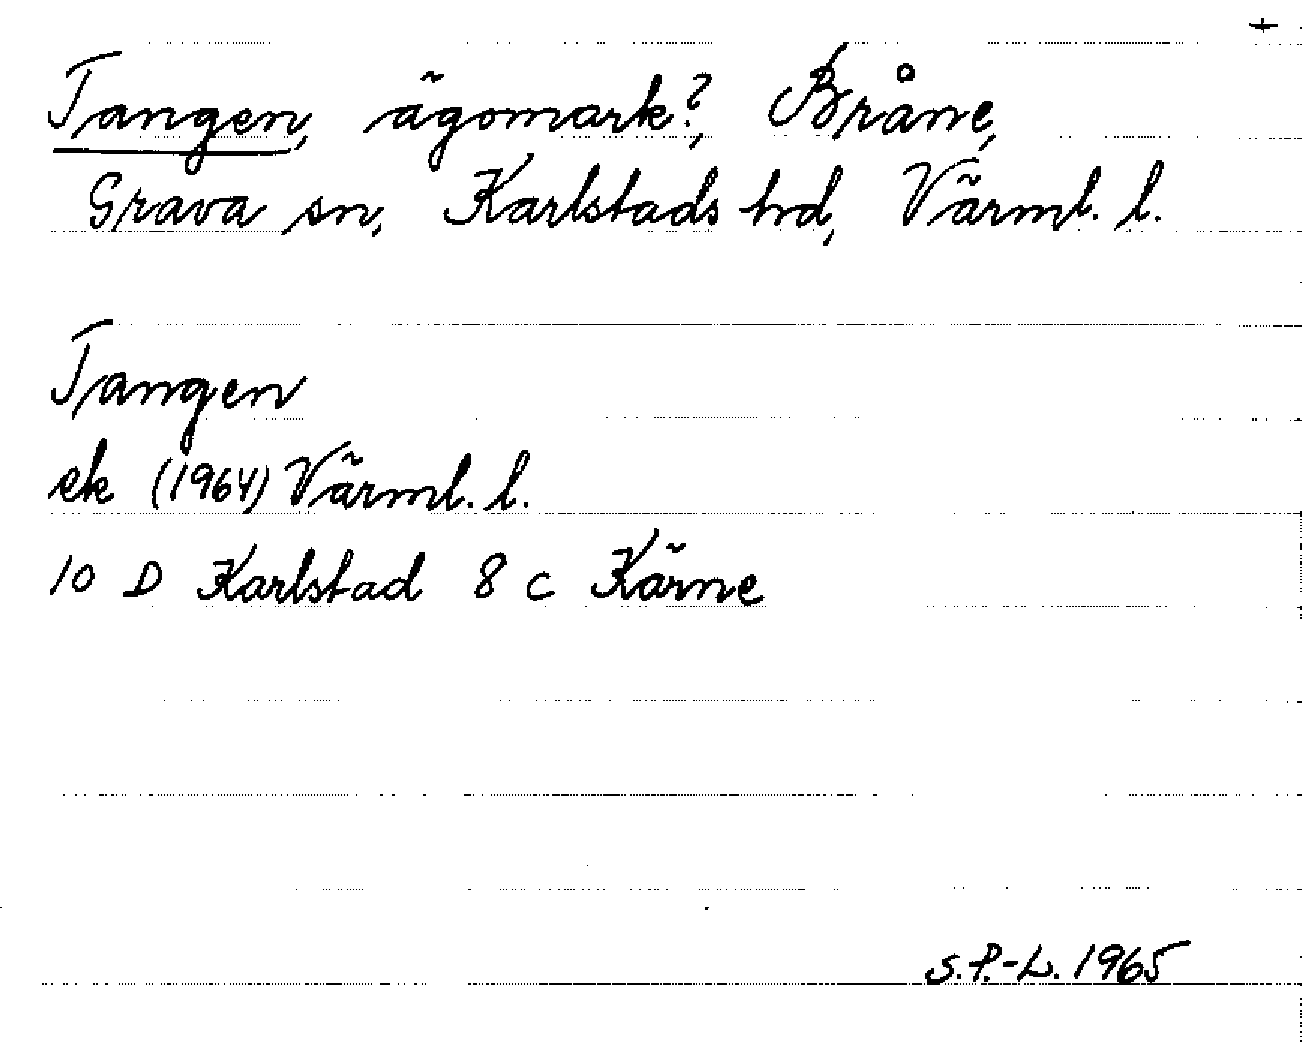 +
Tangen, ägomark?, Bråne,
Grava sn, Karlstads hd, Värml. l.
Tangen
ek (1964) Värml. l.
10 D Karlstad 8 c Kärne
S.P.-L. 1965